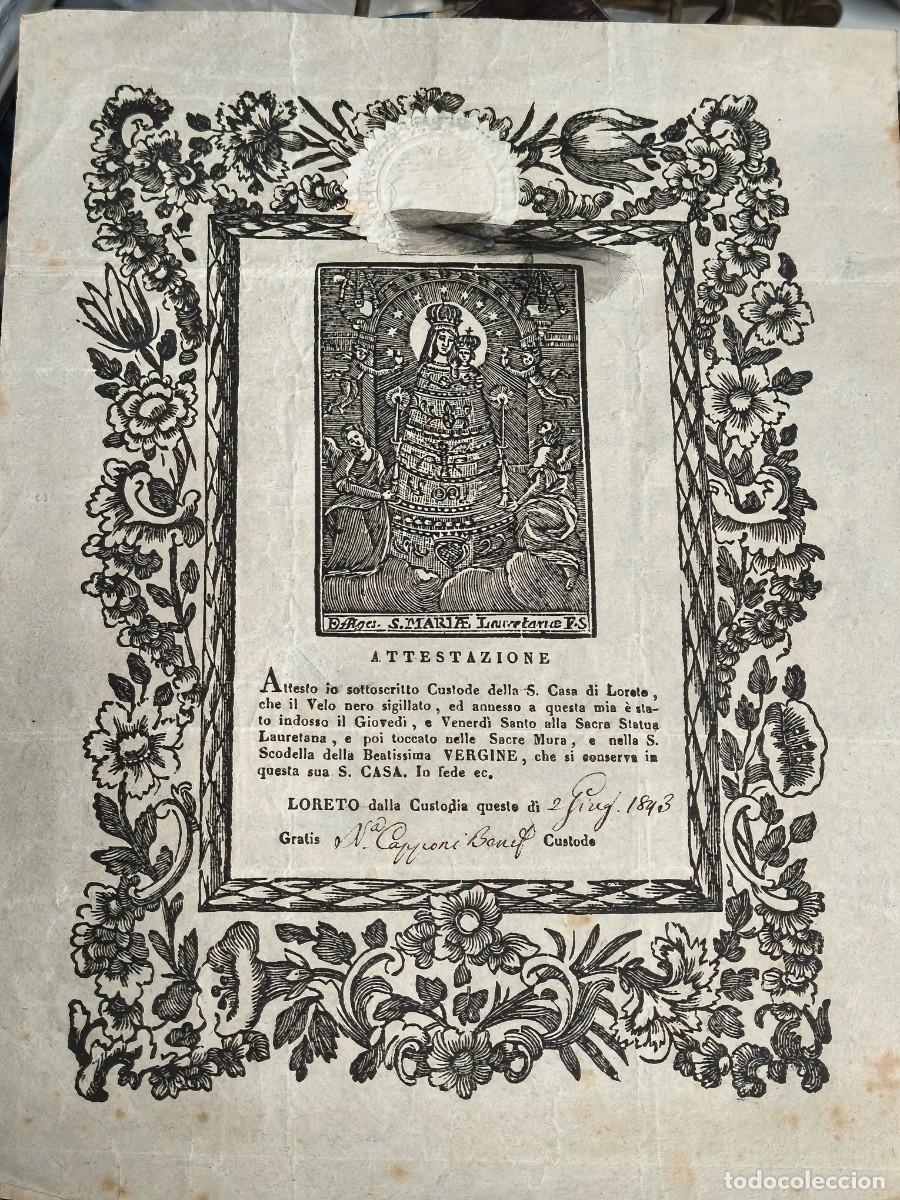 Effiges. S. MARIÆ Lauretanæ F.S
ATTESTAZIONE
Attesto io sottoscritto Custode della S. Casa di Loreto,
che il Velo nero sigillato, ed annesso a questa mia è sta-
to indosso il Giovedì, e Venerdì Santo alla Sacra Statua
Lauretana, e poi toccato nelle Sacre Mura, e nella S.
Scodella della Beatissima VERGINE, che si conserva in
questa sua S. CASA. In fede ec.
LORETO dalla Custodia questo dì 2 Giug. 1843
Gratis N.a Capponi Benef Custode
todocoleccion